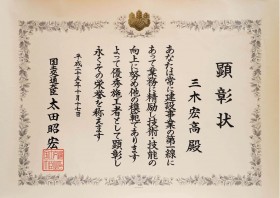 顕彰状
三木宏高殿
あなたは常に建設事業の第一線に
あって業務に精励し技術・技能の
向上に努め他の模範であります
よって優秀施工者として顕彰し
永くその栄誉を称えます
平成二十五年十月十七日
国土交通大臣 太田昭宏